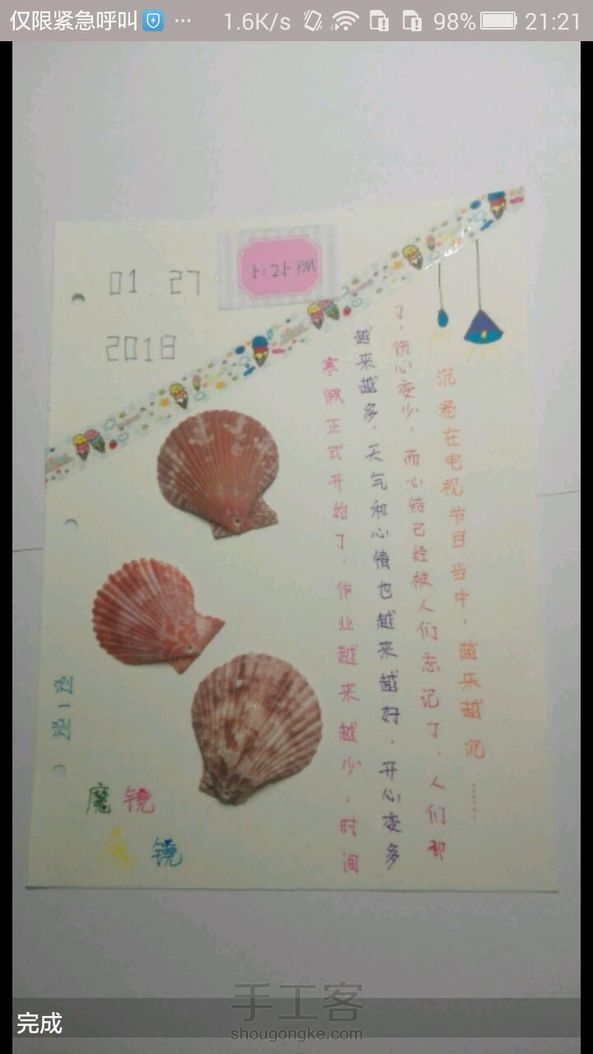 仅限紧急呼叫 ··· 1.6K/s 98% 21:21
01.27
2018
5:25 PM
寒假正式开始了，作业越来越少，时间
越来越多，天气和心情也越来越好。开心变多
了，伤心变少，而心结已经被人们忘记了，人们都
沉在电视节目当中，越乐越沉……
魔镜
魔镜
完成
手工客
shougongke.com